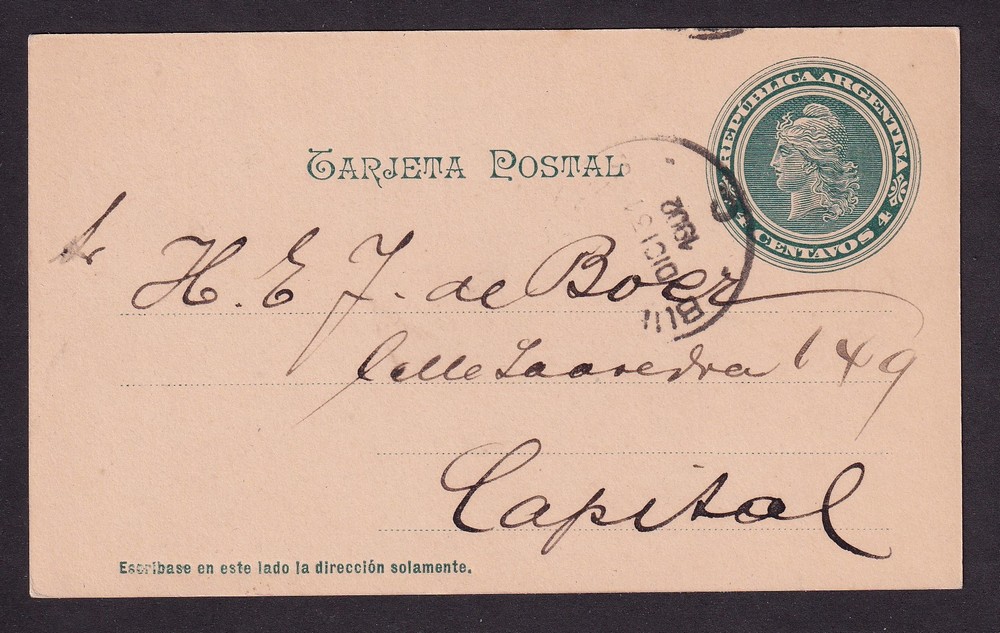 REPÚBLICA ARGENTINA
4 CENTAVOS 4
TARJETA POSTAL
DIC 31
1902
H. E. J. de Boer
Calle Saavedra 149
Capital
Escríbase en este lado la dirección solamente.